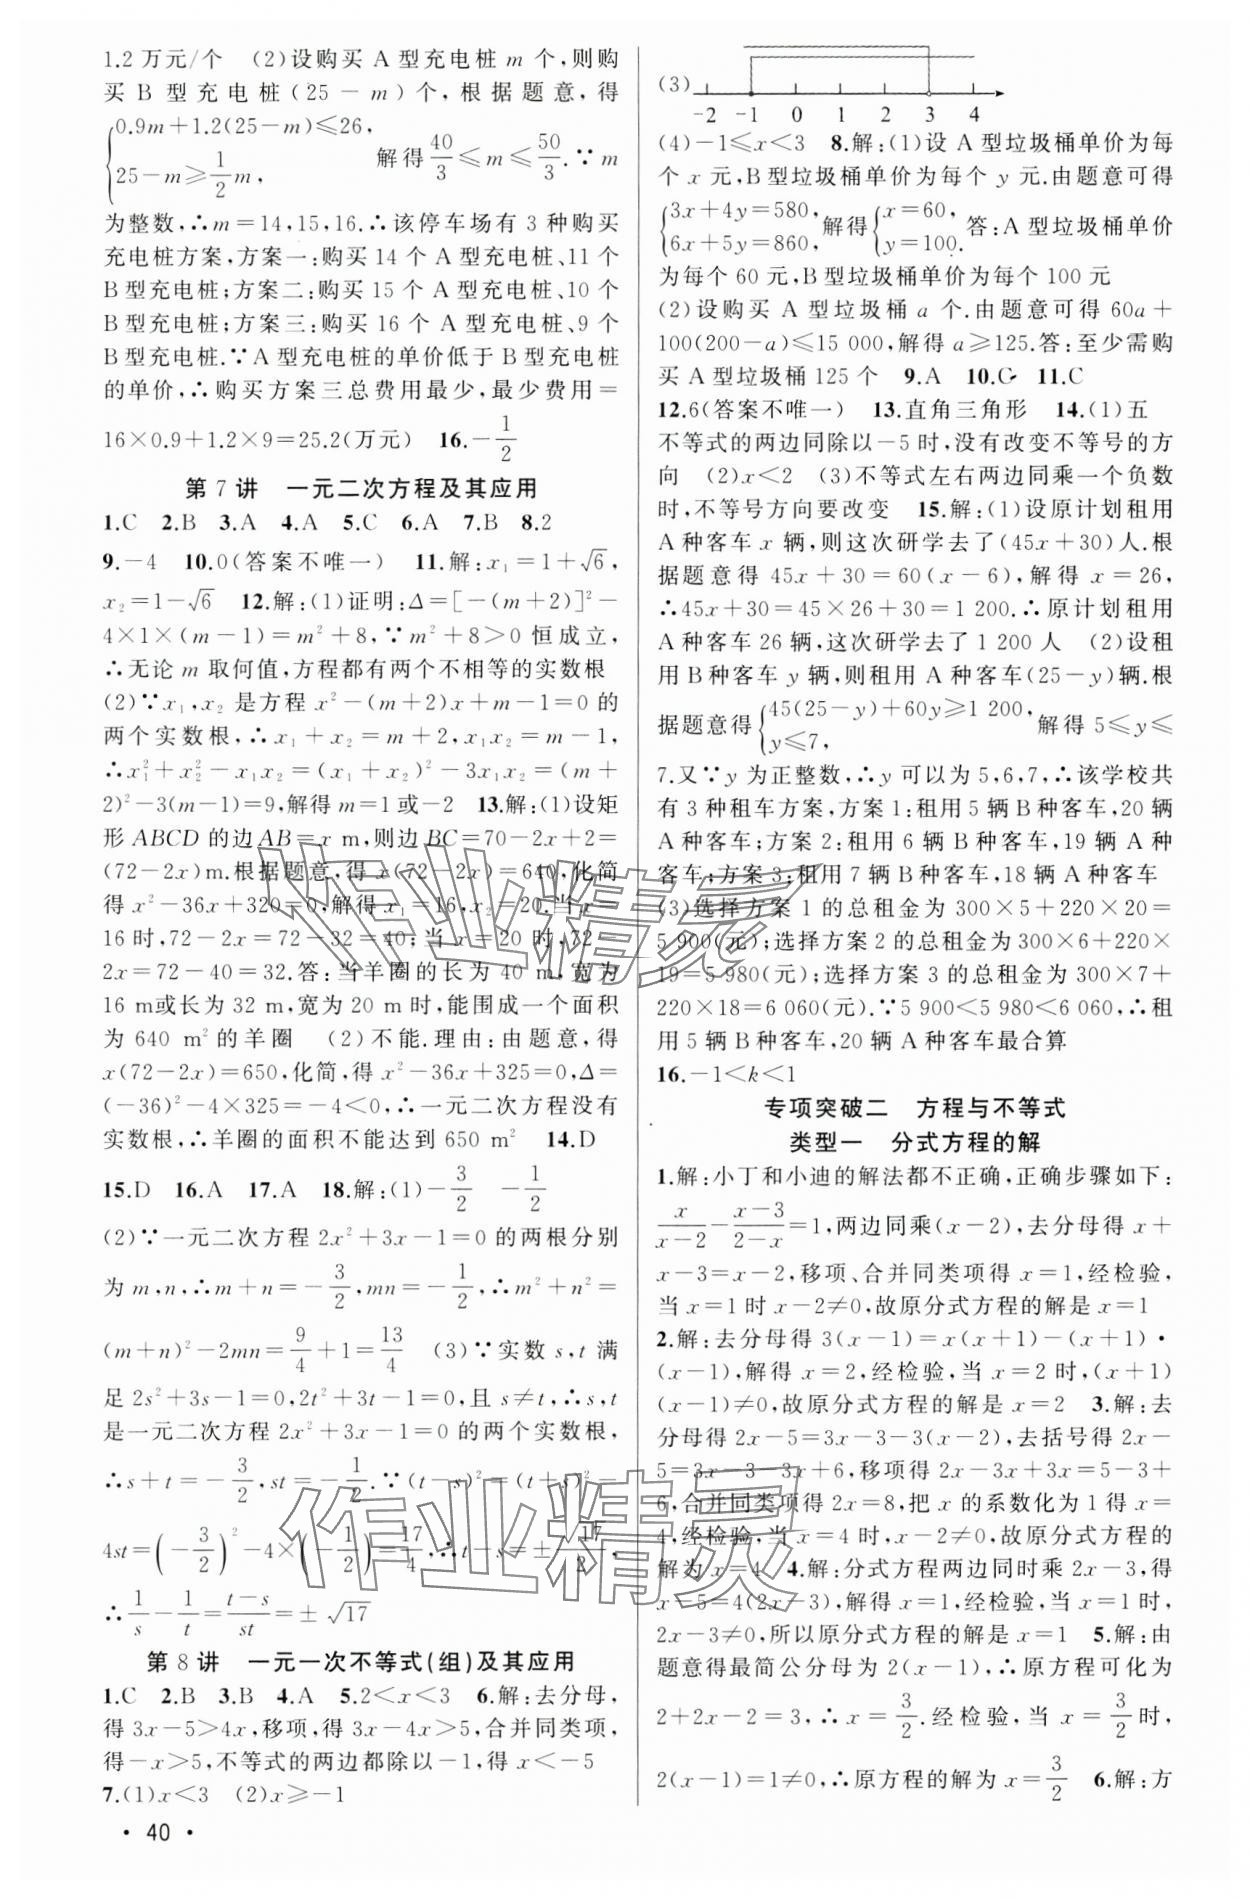 1.2 万元/个　(2)设购买 A 型充电桩 m 个,则购
买 B 型充电桩(25－m)个,根据题意,得
{0.9m+1.2(25－m)≤26,
25－m≥1/2 m, 解得 40/3≤m≤50/3.∵m
为整数,∴m=14,15,16.∴该停车场有 3 种购买
充电桩方案,方案一:购买 14 个 A 型充电桩、11 个
B 型充电桩;方案二:购买 15 个 A 型充电桩、10 个
B 型充电桩;方案三:购买 16 个 A 型充电桩、9 个
B 型充电桩.∵A 型充电桩的单价低于 B 型充电桩
的单价,∴购买方案三总费用最少,最少费用=
16×0.9+1.2×9=25.2(万元)　16.－1/2
第 7 讲　一元二次方程及其应用
1.C　2.B　3.A　4.A　5.C　6.A　7.B　8.2
9.－4　10.0(答案不唯一)　11.解:x₁=1+√6,
x₂=1－√6　12.解:(1)证明:Δ=[－(m+2)]²－
4×1×(m－1)=m²+8,∵m²+8>0 恒成立,
∴无论 m 取何值,方程都有两个不相等的实数根
(2)∵x₁,x₂ 是方程 x²－(m+2)x+m－1=0 的
两个实数根,∴x₁+x₂=m+2,x₁x₂=m－1,
∴x₁²+x₂²－x₁x₂=(x₁+x₂)²－3x₁x₂=(m+
2)²－3(m－1)=9,解得 m=1 或－2　13.解:(1)设矩
形 ABCD 的边 AB=x m,则边 BC=70－2x+2=
(72－2x)m.根据题意,得 x(72－2x)=640,化简
得 x²－36x+320=0,解得 x₁=16,x₂=20.当 x=
16 时,72－2x=72－32=40;当 x=20 时,72－
2x=72－40=32.答:当羊圈的长为 40 m,宽为
16 m或长为 32 m,宽为 20 m 时,能围成一个面积
为 640 m²的羊圈　(2)不能.理由:由题意,得
x(72－2x)=650,化简,得 x²－36x+325=0,Δ=
(－36)²－4×325=－4<0,∴一元二次方程没有
实数根,∴羊圈的面积不能达到 650 m²　14.D
15.D　16.A　17.A　18.解:(1)－3/2　－1/2
(2)∵一元二次方程 2x²+3x－1=0 的两根分别
为 m,n,∴m+n=－3/2,mn=－1/2,∴m²+n²=
(m+n)²－2mn=9/4+1=13/4　(3)∵实数 s,t 满
足 2s²+3s－1=0,2t²+3t－1=0,且 s≠t,∴s,t
是一元二次方程 2x²+3x－1=0 的两个实数根,
∴s+t=－3/2,st=－1/2.∵(t－s)²=(t+s)²－
4st=(－3/2)²－4×(－1/2)=17/4,∴t－s=±√17/2,
∴1/s－1/t=(t－s)/st=±√17
第 8 讲　一元一次不等式(组)及其应用
1.C　2.B　3.B　4.A　5.2<x<3　6.解:去分母,
得 3x－5>4x,移项,得 3x－4x>5,合并同类项,
得－x>5,不等式的两边都除以－1,得 x<－5
7.(1)x<3　(2)x≥－1
· 40 ·
(3) －2 －1 0 1 2 3 4
(4)－1≤x<3　8.解:(1)设 A 型垃圾桶单价为每
个 x 元,B型垃圾桶单价为每个 y 元.由题意可得
{3x+4y=580,
6x+5y=860, 解得{x=60,
y=100. 答:A 型垃圾桶单价
为每个 60 元,B型垃圾桶单价为每个 100 元
(2)设购买 A 型垃圾桶 a 个.由题意可得 60a+
100(200－a)≤15 000,解得 a≥125.答:至少需购
买 A 型垃圾桶 125 个　9.A　10.C　11.C
12.6(答案不唯一)　13.直角三角形　14.(1)五
不等式的两边同除以－5 时,没有改变不等号的方
向　(2)x<2　(3)不等式左右两边同乘一个负数
时,不等号方向要改变　15.解:(1)设原计划租用
A 种客车 x 辆,则这次研学去了(45x+30)人.根
据题意得 45x+30=60(x－6),解得 x=26,
∴45x+30=45×26+30=1 200.∴原计划租用
A 种客车 26 辆,这次研学去了 1 200 人　(2)设租
用 B 种客车 y 辆,则租用 A 种客车(25－y)辆.根
据题意得{45(25－y)+60y≥1 200,
y≤7, 解得 5≤y≤
7.又∵y 为正整数,∴y 可以为 5,6,7,∴该学校共
有 3 种租车方案,方案 1:租用 5 辆 B种客车,20 辆
A 种客车;方案 2:租用 6 辆 B 种客车,19 辆 A 种
客车;方案 3:租用 7 辆 B种客车,18 辆 A 种客车
(3)选择方案 1 的总租金为 300×5+220×20=
5 900(元);选择方案 2 的总租金为 300×6+220×
19=5 980(元);选择方案 3 的总租金为 300×7+
220×18=6 060(元).∵5 900<5 980<6 060,∴租
用 5 辆 B种客车,20 辆 A种客车最合算
16.－1<k<1
专项突破二　方程与不等式
类型一　分式方程的解
1.解:小丁和小迪的解法都不正确,正确步骤如下:
x/(x－2)－(x－3)/(2－x)=1,两边同乘(x－2),去分母得 x+
x－3=x－2,移项、合并同类项得 x=1,经检验,
当 x=1 时 x－2≠0,故原分式方程的解是 x=1
2.解:去分母得 3(x－1)=x(x+1)－(x+1)·
(x－1),解得 x=2,经检验,当 x=2 时,(x+1)
(x－1)≠0,故原分式方程的解是 x=2　3.解:去
分母得 2x－5=3x－3－3(x－2),去括号得 2x－
5=3x－3－3x+6,移项得 2x－3x+3x=5－3+
6,合并同类项得 2x=8,把 x 的系数化为 1 得 x=
4,经检验,当 x=4 时,x－2≠0,故原分式方程的
解为 x=4　4.解:分式方程两边同时乘 2x－3,得
x－5=4(2x－3),解得 x=1,经检验,当 x=1 时,
2x－3≠0,所以原分式方程的解是 x=1　5.解:由
题意得最简公分母为 2(x－1),∴原方程可化为
2+2x－2=3,∴x=3/2.经检验,当 x=3/2时,
2(x－1)=1≠0,∴原方程的解为 x=3/2　6.解:方
作业精灵
作业精灵